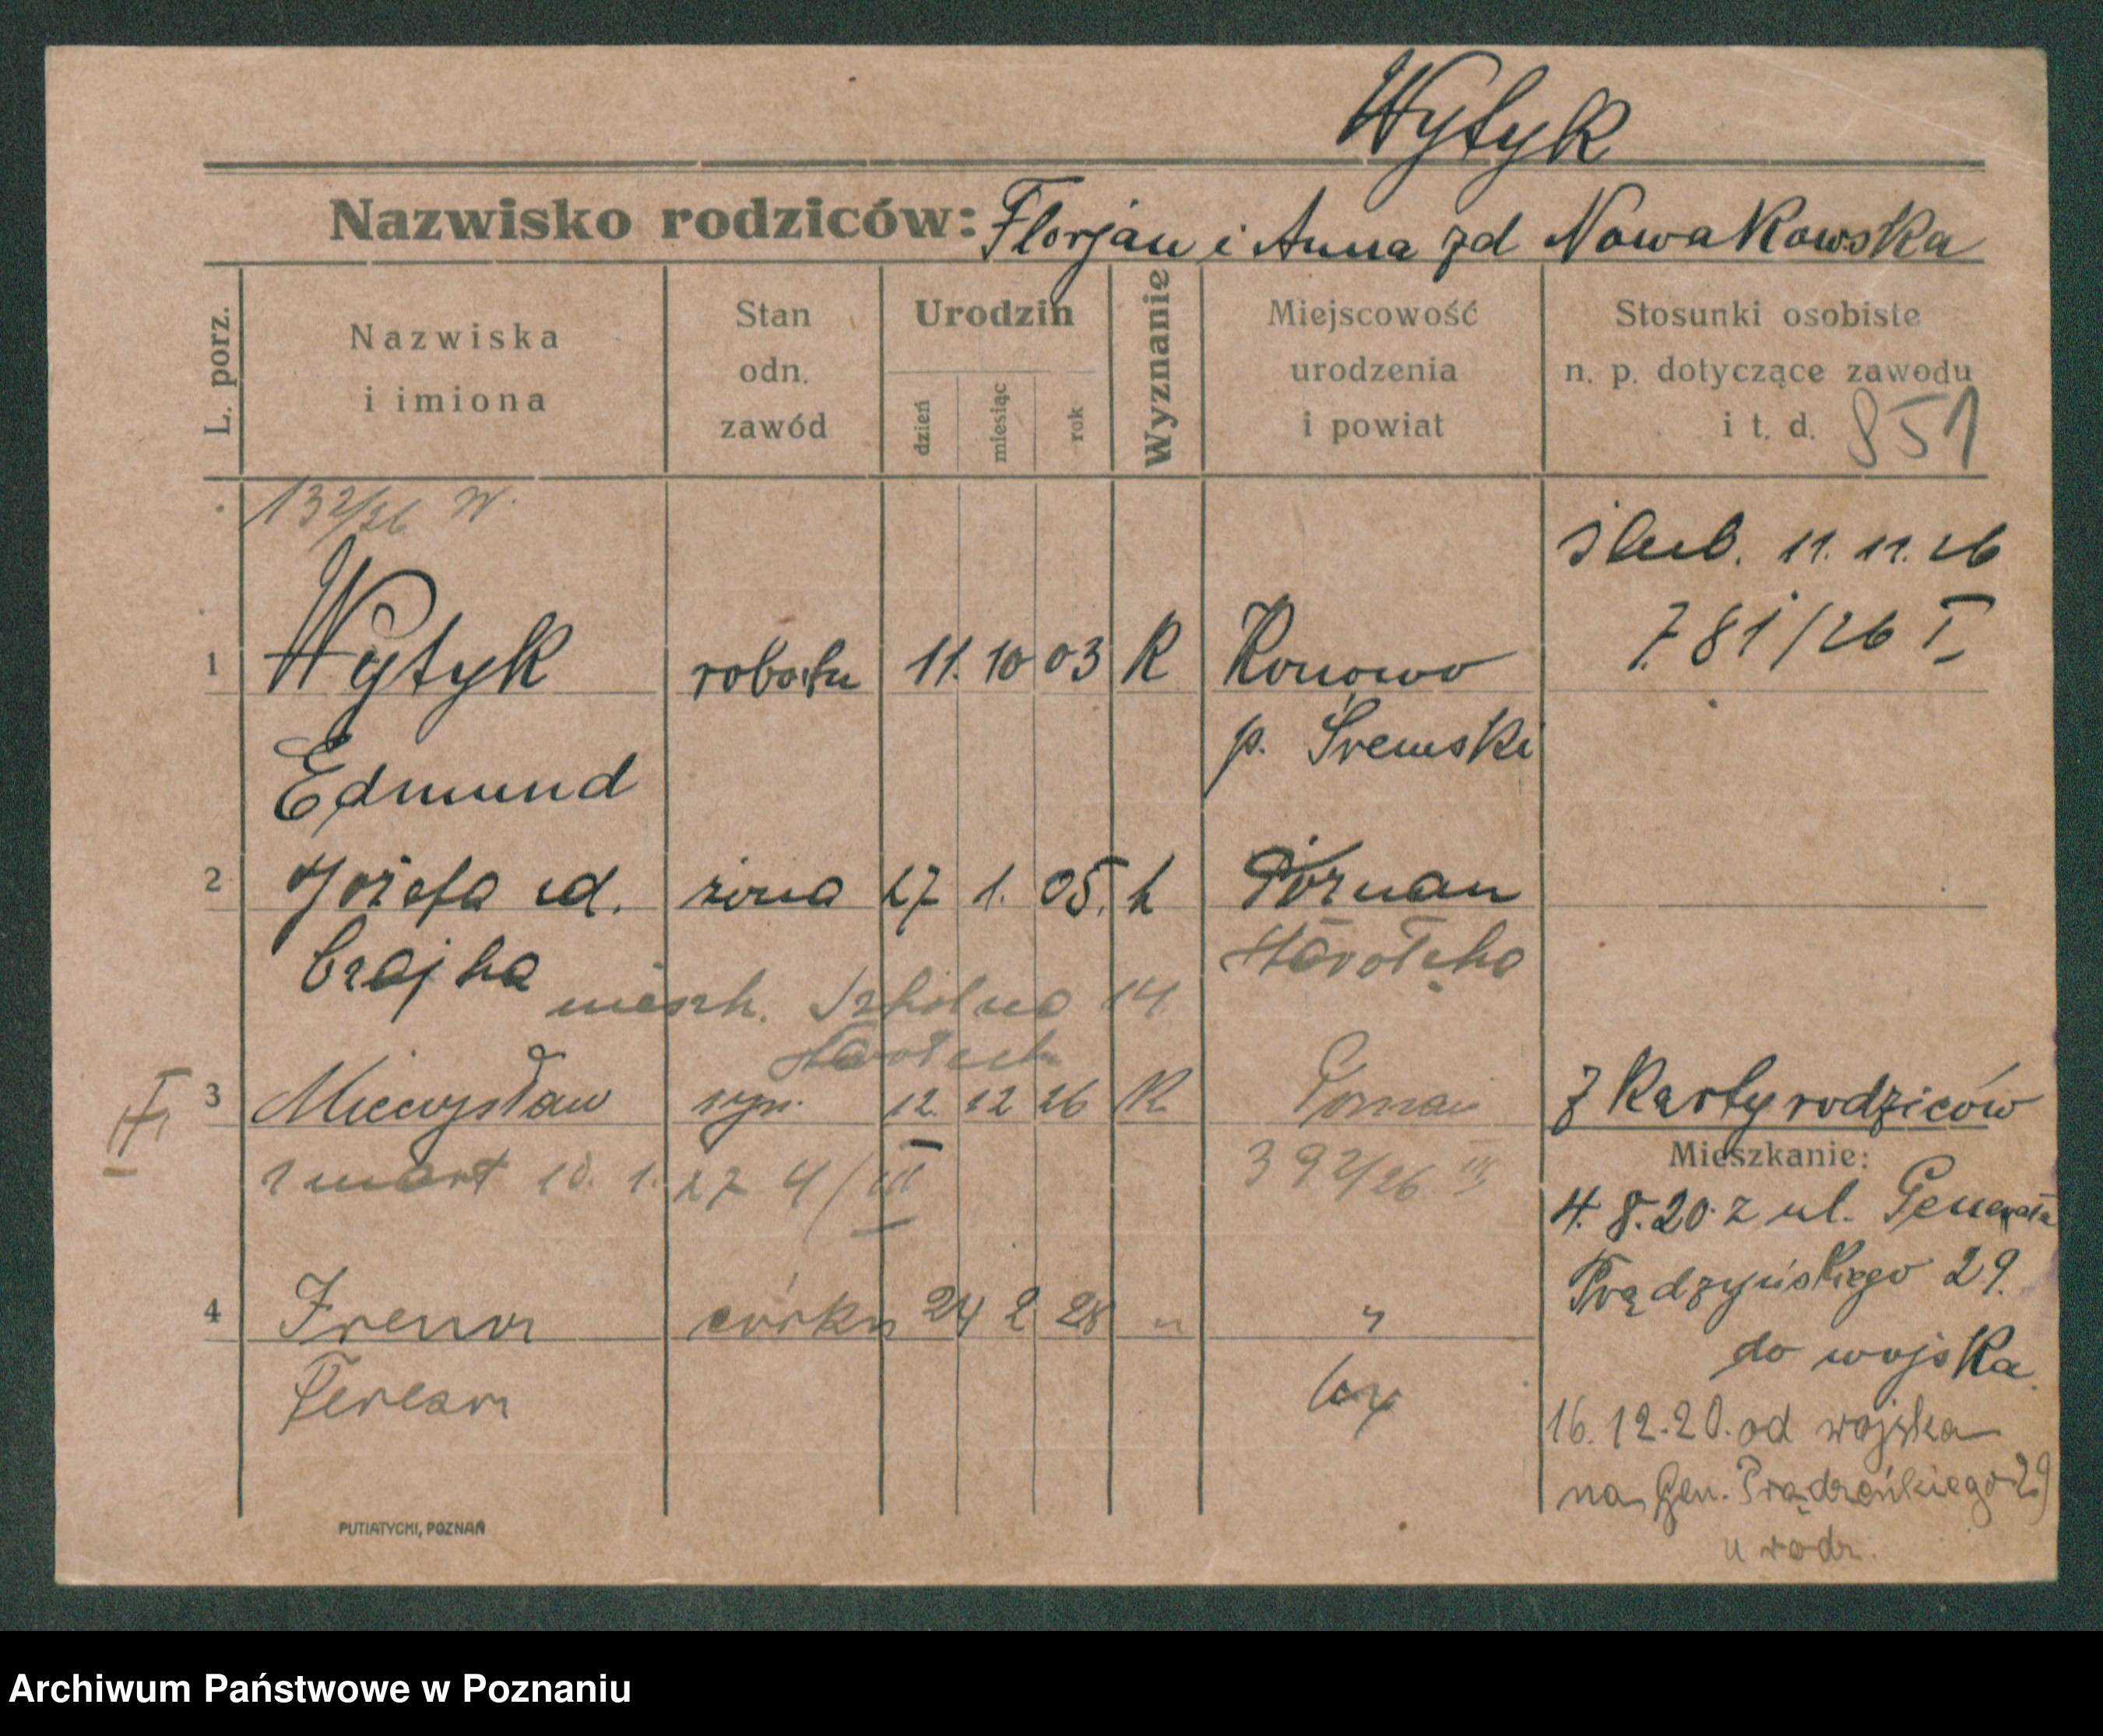 Wytyk
Nazwisko rodziców: Florjan i Anna zd Nowakowska
L. porz.
Nazwiska i imiona
Stan odn. zawód
Urodzin
dzień miesiąc rok
Wyznanie
Miejscowość urodzenia i powiat
Stosunki osobiste n. p. dotyczące zawodu i t. d. 851
132/26 W.
ślub. 11. 11. 26
781/26 I
1 Wytyk robotn 11. 10 03 K Konowo
Edmund p. Śremski
2 Józefa zd. żona 27 1. 05. k Poznan
Czajka Starołęka
mieszk. Szkolna 14
Starołęka
3 Mieczysław syn. 12. 12 26 K. Poznań z Karty rodziców
zmart 10. 1. 27 4/III 392/26 III
Mieszkanie:
4. 8. 20. z ul. Generała
Prądzyńskiego 29.
do wojska.
4 Irena córka 24 2 28 " "
Teresa
16. 12. 20. od wojska
na Gen. Prądzeńkiego 29
u rodz.
PUTIATYCKI, POZNAŃ
Archiwum Państwowe w Poznaniu